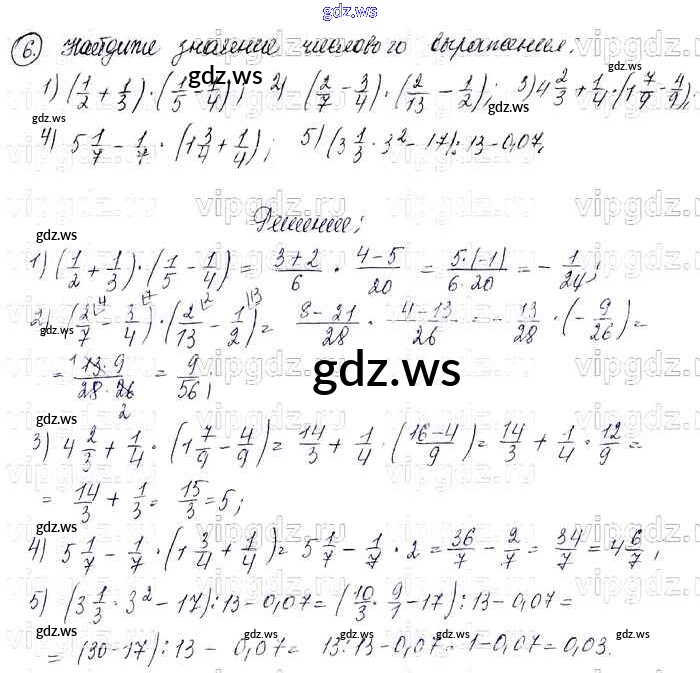 gdz.ws
6. Найдите значение числового выражения:
1) (1/2 + 1/3) · (1/5 - 1/4); 2) (2/7 - 3/4) · (2/13 - 1/2); 3) 4 2/3 + 1/4 · (1 7/9 - 4/9);
4) 5 1/7 - 1/7 · (1 3/4 + 1/4); 5) (3 1/3 · 3² - 17) : 13 - 0,07.
Решение:
1) (1/2 + 1/3) · (1/5 - 1/4) = (3+2)/6 · (4-5)/20 = 5·(-1)/(6·20) = - 1/24;
2) (2/7 - 3/4) · (2/13 - 1/2) = (8-21)/28 · (4-13)/26 = - 13/28 · (- 9/26) =
= 13·9/(28·26) = 9/56;
gdz.ws
3) 4 2/3 + 1/4 · (1 7/9 - 4/9) = 14/3 + 1/4 · ((16-4)/9) = 14/3 + 1/4 · 12/9 =
= 14/3 + 1/3 = 15/3 = 5;
4) 5 1/7 - 1/7 · (1 3/4 + 1/4) = 5 1/7 - 1/7 · 2 = 36/7 - 2/7 = 34/7 = 4 6/7;
5) (3 1/3 · 3² - 17) : 13 - 0,07 = (10/3 · 9/1 - 17) : 13 - 0,07 =
= (30-17) : 13 - 0,07 = 13:13 - 0,07 = 1-0,07 = 0,03.